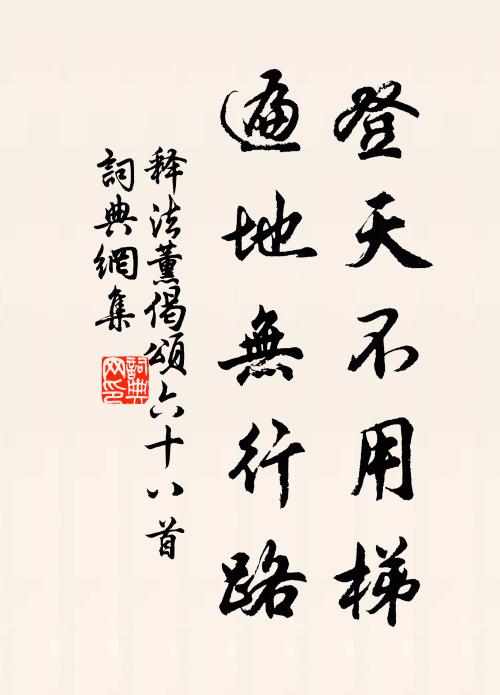 登天不用梯
遍地無行路
释法薰偈頌六十八首
詞典網集
詞典網印